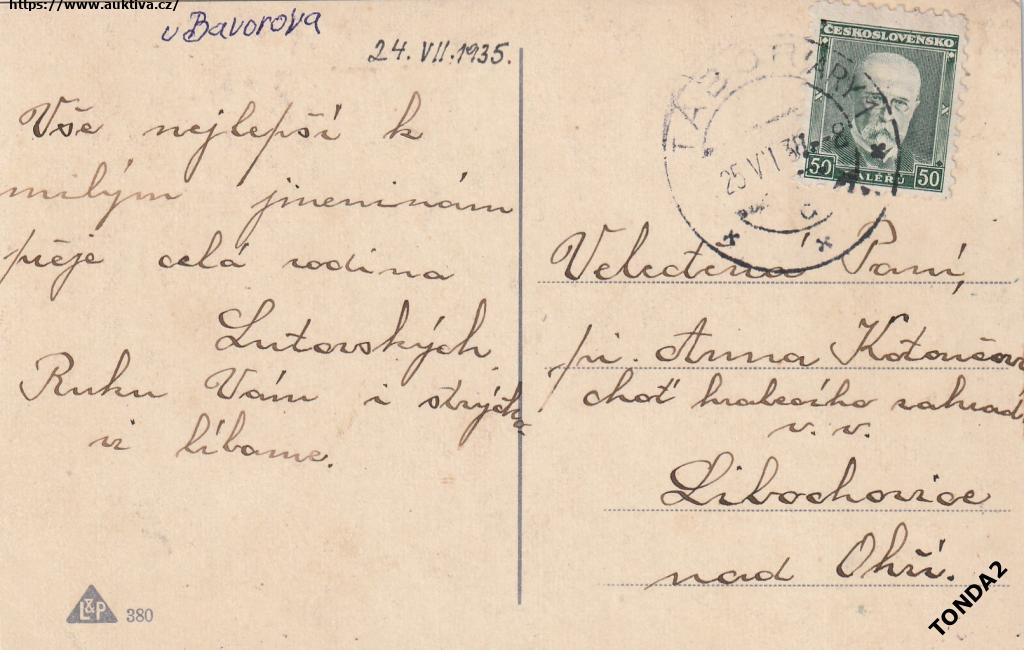 https://www.auktiva.cz/
u Bavorova
24. VII. 1935.
Vše nejlepší k
milým jmeninám
přeje celá rodina
Lutovských
Ruku Vám i strýčko
vi líbame.
L&P 380
ČESKOSLOVENSKO
50 HALÉŘŮ 50
25 VII
Velectěná Paní,
pí. Anna Kotoučov
choť hraběcího zahrad.
v. v.
Libochovice
nad Ohří.
TONDA2